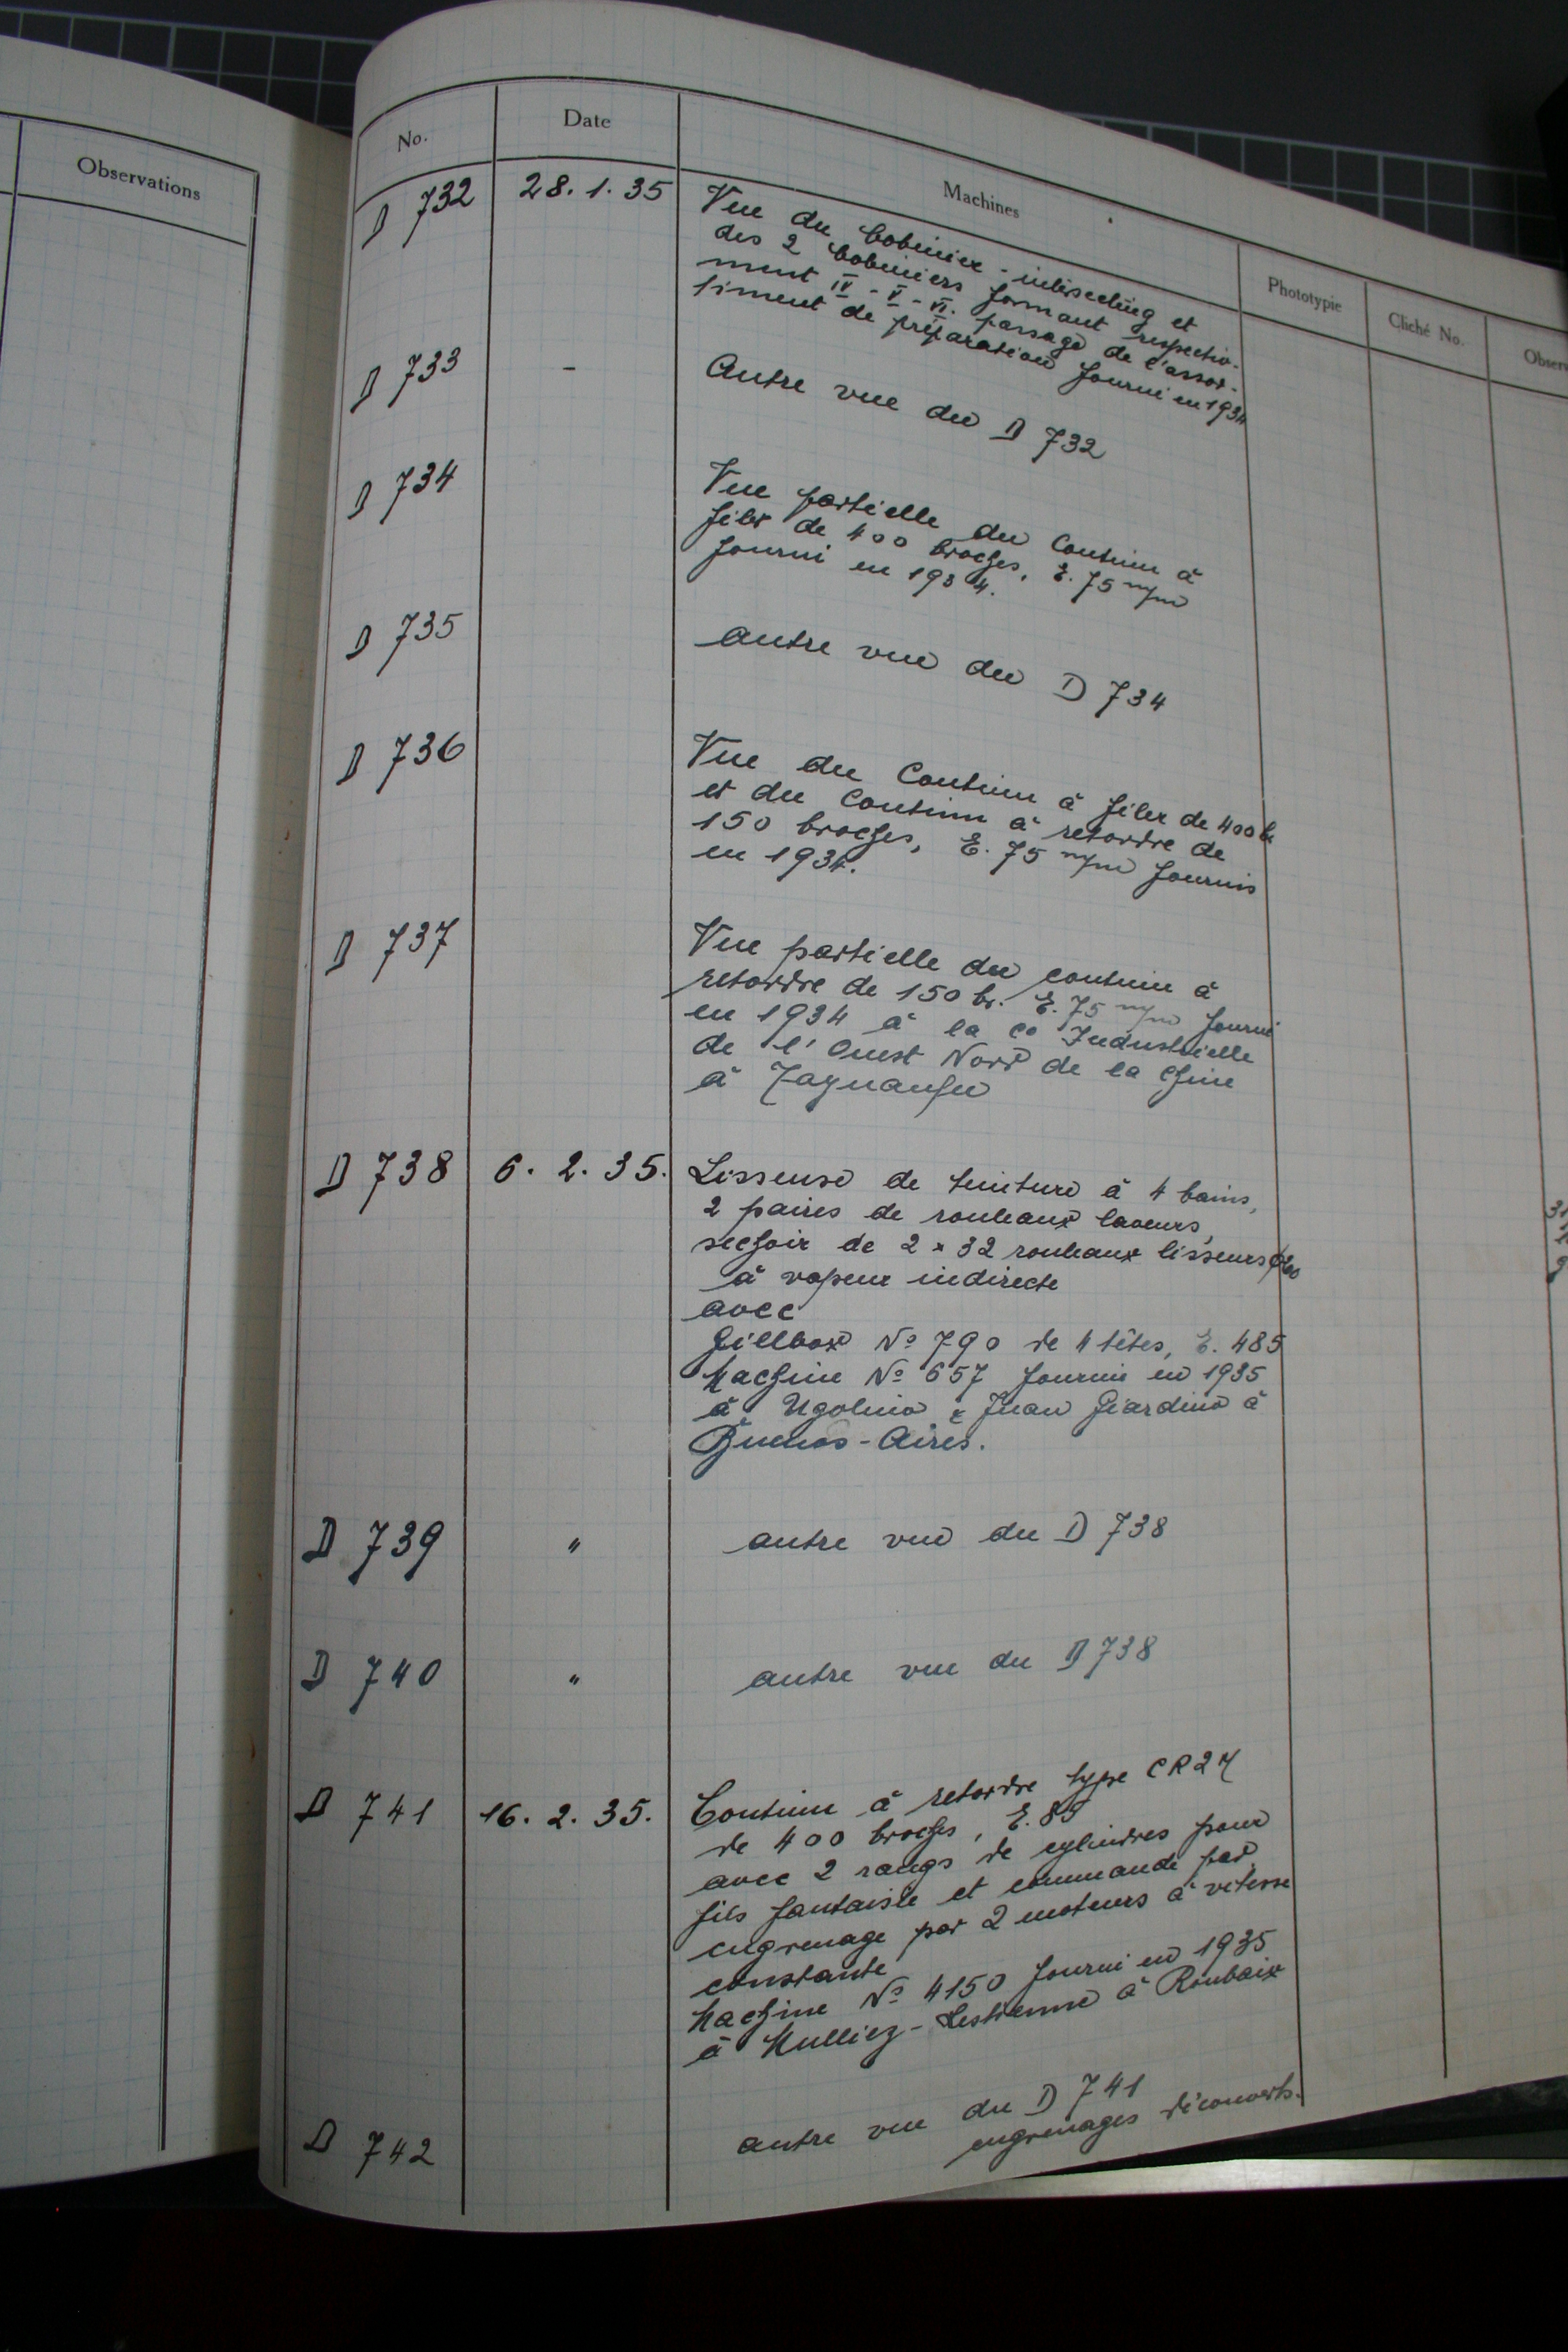 Observations
No. Date Machines Phototypie Cliché No. Observ
D 732 28. 1. 35 Vue du bobinier-intersecting et
des 2 bobiniers formant respective-
ment IV - V - VI. passage de l'assor-
timent de préparation fourni en 1934
D 733 - Autre vue du D 732
D 734 Vue partielle du Continu à
filer de 400 broches, E. 75 m/m
fourni en 1934.
D 735 autre vue du D 734
D 736 Vue du Continu à filer de 400 b
et du Continu à retordre de
150 broches, E. 75 m/m fournis
en 1934.
D 737 Vue partielle du continu à
retordre de 150 br. E. 75 m/m fourni
en 1934 à la Co Industrielle
de l'Ouest Nord de la Chine
à Tayuanfu
D 738 6. 2. 35. Lisseuse de teinture à 4 bains,
2 paires de rouleaux laveurs,
sechoir de 2 x 32 rouleaux lisseurs
à vapeur indirecte
avec
Gillbox No 790 de 4 têtes, E. 485
Machine No 657 fournie en 1935
à Ugolino & Juan Giardino à
Buenos-Aires.
D 739 " autre vue du D 738
D 740 " autre vue du D 738
D 741 16. 2. 35. Continu à retordre type CR24
de 400 broches, E. 85
avec 2 rangs de cylindres pour
fils fantaisie et commande par
engrenage par 2 moteurs à vitesse
constante
Machine No 4150 fourni en 1935
à Mulliez-Lestienne à Roubaix
D 742 autre vue du D 741
engrenages découverts.